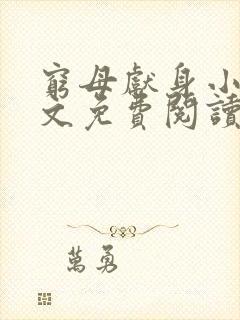 窮母獻身小
文免費閱讀
萬勇